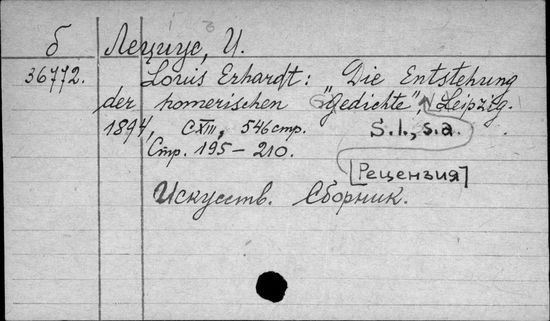 б Лециус, И.
36772. Louis Erhardt: Die Entstehung
der homerischen "Gedichte", Leipzig.
1894, CXIII, 546 стр. S.l., s.a.
Стр. 195–210.
[Рецензия]
Искусств. Сборник.